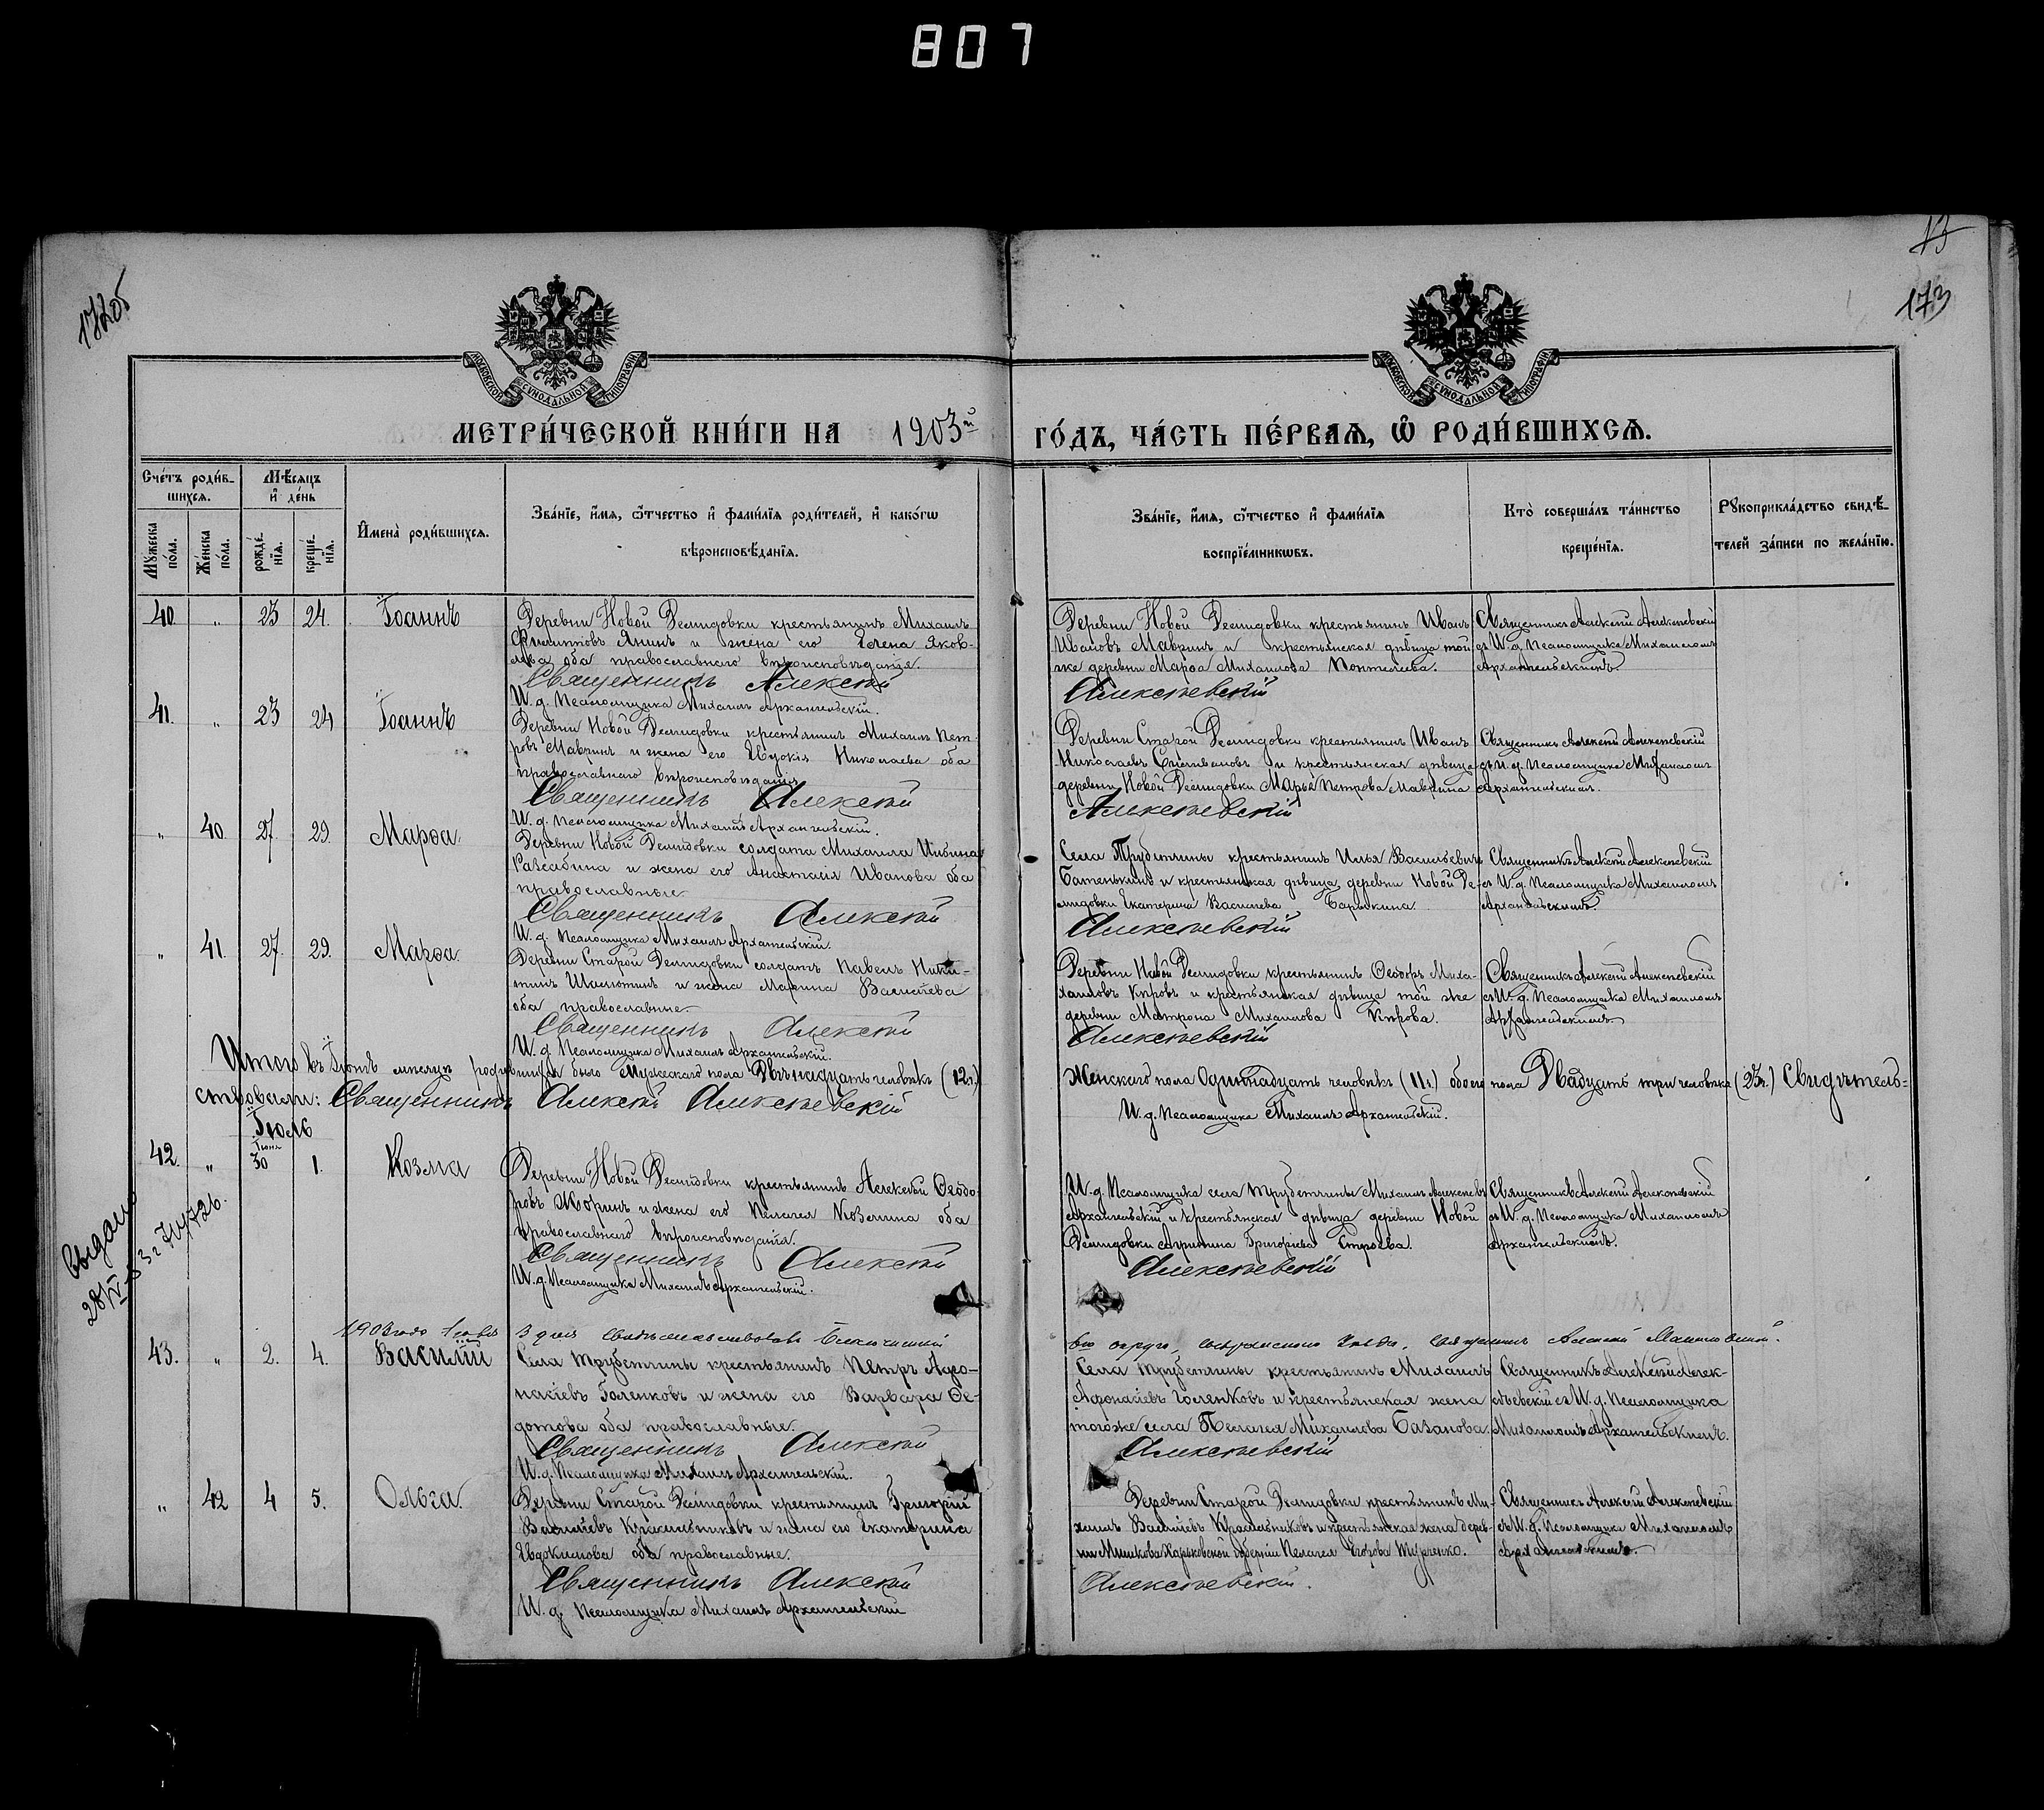 807
172об
13
173
МОСКОВСКОЙ СѴНОДАЛЬНОЙ ТИПОГРАФІИ
МОСКОВСКОЙ СѴНОДАЛЬНОЙ ТИПОГРАФІИ
МЕТРИ́ЧЕСКОЙ КНИ́ГИ НА 1903й ГО́ДЪ, ЧА́СТЬ ПЕ́РВАѦ, Ѡ҆ РОДИ́ВШИХСѦ.
Сче́тъ роди́в-
шихсѧ.
Мѣ́сѧцъ
и҆ де́нь
Мꙋ́жеска
по́ла.
Же́нска
по́ла.
рожде́-
нїѧ.
креще́-
нїѧ.
И҆мена̀ роди́вшихсѧ.
Зва́нїе, и҆́мѧ, ѻ҆́тчество и҆ фами́лїѧ роди́телей, и҆ како́гѡ
вѣроисповѣ́данїѧ.
Зва́нїе, и҆́мѧ, ѻ҆́тчество и҆ фами́лїѧ
воспрїе́мникѡвъ.
Кто̀ соверша́лъ та́инство
креще́нїѧ.
Рꙋкоприкла́дство свидѣ́-
телей за́писи по жела́нїю.
40 " 23 24. Іоаннъ
Деревни Новой Демидовки крестьянинъ Михаилъ
Филипповъ Янинъ и жена его Елена Яков-
лева оба православнаго вѣроисповѣданія.
Священникъ Алексѣй
И. д. Псаломщика Михаилъ Архангельскій.
Деревни Новой Демидовки крестьянинъ Иванъ
Ивановъ Мавринъ и крестьянская дѣвица той
же деревни Марѳа Михаилова
Алексѣевскій
Священникъ Алексѣй Алексѣевскій
съ И. д. Псаломщика Михаиломъ
Архангельскимъ
41. " 23 24 Іоаннъ
Деревни Новой Демидовки крестьянинъ Михаилъ Пет-
ровъ Мавринъ и жена его Евдокія Николаева оба
православнаго вѣроисповѣданія
Священникъ Алексѣй
И. д. Псаломщика Михаилъ Архангельскій.
Деревни Старой Демидовки крестьянинъ Иванъ
Николаевъ и крестьянская дѣвица
деревни Новой Демидовки Марья Петрова Маврина
Алексѣевскій
Священникъ Алексѣй Алексѣевскій
съ И. д. Псаломщика Михаиломъ
Архангельскимъ.
" 40. 27. 29. Марѳа
Деревни Новой Демидовки солдата Михаила
и жена его Анастасія Иванова оба
православные
Священникъ Алексѣй
И. д. Псаломщика Михаилъ Архангельскій.
Села Трубетчины крестьянинъ Илья Васильевичъ
Батенькинъ и крестьянская дѣвица деревни Новой Де-
мидовки Екатерина Васильева
Алексѣевскій
Священникъ Алексѣй Алексѣевскій
съ И. д. Псаломщика Михаиломъ
Архангельскимъ.
" 41. 27. 29. Марѳа.
Деревни Старой Демидовки солдатъ Павелъ Ники-
тинъ и жена Марина Васильева
оба православные
Священникъ Алексѣй
И. д. Псаломщика Михаилъ Архангельскій.
Деревни Новой Демидовки крестьянинъ Ѳеодоръ Миха-
хаиловъ Кировъ и крестьянская дѣвица той же
деревни Матрона Михаилова Кирова.
Алексѣевскій
Священникъ Алексѣй Алексѣевскій
съ И. д. Псаломщика Михаиломъ
Архангельскимъ
Итого въ Іюнѣ мѣсяцѣ родившихся было Мужескаго пола Двѣнадцать человѣкъ (12ч.) Женскаго пола Одиннадцать человѣкъ (11ч.) обоего пола Двадцать три человѣка (23ч.) Свидѣтель-
ствовали: Священникъ Алексѣй Алексѣевскій
И. д. Псаломщика Михаилъ Архангельскій.
Іюль
42. " Іюня 30 1. Козма
Деревни Новой Демидовки крестьянинъ Алексѣй Ѳеодо-
ровъ и жена его Пелагея Козмина оба
православнаго вѣроисповѣданія.
Священникъ Алексѣй
И. д. Псаломщика Михаилъ Архангельскій.
И. д. Псаломщика села Трубетчины Михаилъ Алексѣевъ
Архангельскій и крестьянская дѣвица деревни Новой
Демидовки Григорьева Строева.
Алексѣевскій
Священникъ Алексѣй Алексѣевскій
съ И. д. Псаломщика Михаиломъ
Архангельскимъ.
Выдано
1903 года 3 дня
43. " 2. 4. Василій
Села Трубетчины крестьянинъ Петръ Аѳо-
насіевъ Голенковъ и жена его Варвара Ѳе-
дотова оба православные.
Священникъ Алексѣй
И. д. Псаломщика Михаилъ Архангельскій.
Села Трубетчины крестьянинъ Михаилъ
Афонасіевъ Голенковъ и крестьянская жена
тогоже села Пелагея Михаилова Базанова.
Алексѣевскій
Священникъ Алексѣй Алек-
сѣевскій съ И. д. Псаломщика
Михаиломъ Архангельскимъ.
" 42 4 5. Ольга.
Деревни Старой Демидовки крестьянинъ Григорій
Васильевъ Красильниковъ и жена его Екатерина
Евдокимова оба православные.
Священникъ Алексѣй
И. д. Псаломщика Михаилъ Архангельскій
Деревни Старой Демидовки крестьянинъ Ми-
хаилъ Васильевъ Красильниковъ и крестьянская жена дерев-
ни Харьковской губерніи Пелагея Егорова
Алексѣевскій.
Священникъ Алексѣй Алексѣевскій
съ И. д. Псаломщика Михаиломъ
Архангельскимъ.